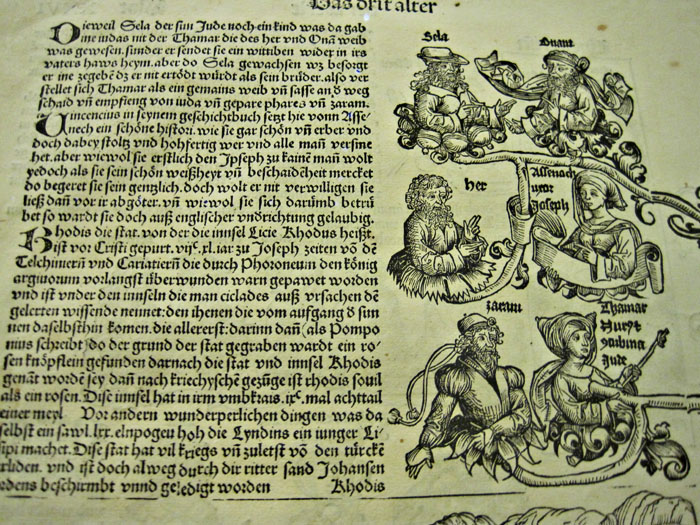 Das drit alter
Dieweil Sela der sun Jude noch ein kind was da gab
me iudas nit der Thamar die des her vnd Onã weib
was gewesen. sunder er sendet sie ein wittiben wider in irs
vaters haws heym. aber do Sela gewachsen wz besorgt
er ine zegebẽ dz er nit ertödt würdt als sein brüder. also ver
stellet sich Thamar als ein gemains weib vñ sasse an d weg
schaid vñ empfieng von iuda vñ gepare phares vñ zaram.
Vincencius in seynem geschichtbuch setzt hie vonn Asse
nech ein schöne histori. wie sie gar schön vñ erber vnd
doch dabey stoltz vnd hohfertig wer vnd alle man versme
het. aber wiewol sie erstlich den Jpseph zu kainẽ man wolt
yedoch als sie sein schön weißheyt vñ bescheidẽheit mercket
do begeret sie sein gentzlich. doch wolt er nit verwilligen sie
ließ dañ vor ir abgöter. vñ wiewol sie sich darumb betrü
bet so wardt sie doch auß englischer vndrichtung gelaubig.
Rhodis die stat. von der die innsel Licie Rhodus heißt.
ist vor Cristi gepurt. vijᶜ. xl. iar zu Joseph zeiten võ dẽ
Telchinierñ vnd Cariatierñ die durch Phoroneum den könig
arguiorum vorlangst überwunden warn gepawet worden
vnd ist vnder den innseln die man ciclades auß vrsachen dẽ
gelerten wissende nennet: den ihenen die vom aufgang d sun
nen daselbsthin komen. die allererst: darinn dañ (als Pompo
nius schreibt) do der grund der stat gegraben wardt ein ro-
sen knöpflein gefunden darnach die stat vnd innsel Rhodis
genãt wordẽ sey dañ nach kriechyschẽ gezüge ist rhodis souil
als ein rosen. Dise innsel hat in irm vmbkrais. ixᶜ. mal achttail
einer meyl Vor andern wunderperlichen dingen was da
selbst ein sawl. lxx. elnpogen hoh die Lyndins ein iunger Li-
sipi machet. Dise stat hat vil kriegs vñ zuletst võ den türckẽ
erliden. vnd ist doch alweg durch dir ritter sand Johansen
ordens beschirmbt vnnd geledigt worden Rhodis
Sela
Onam
her
Assenach
vxor
Joseph
zaram
Thamar
Nurus
Jude